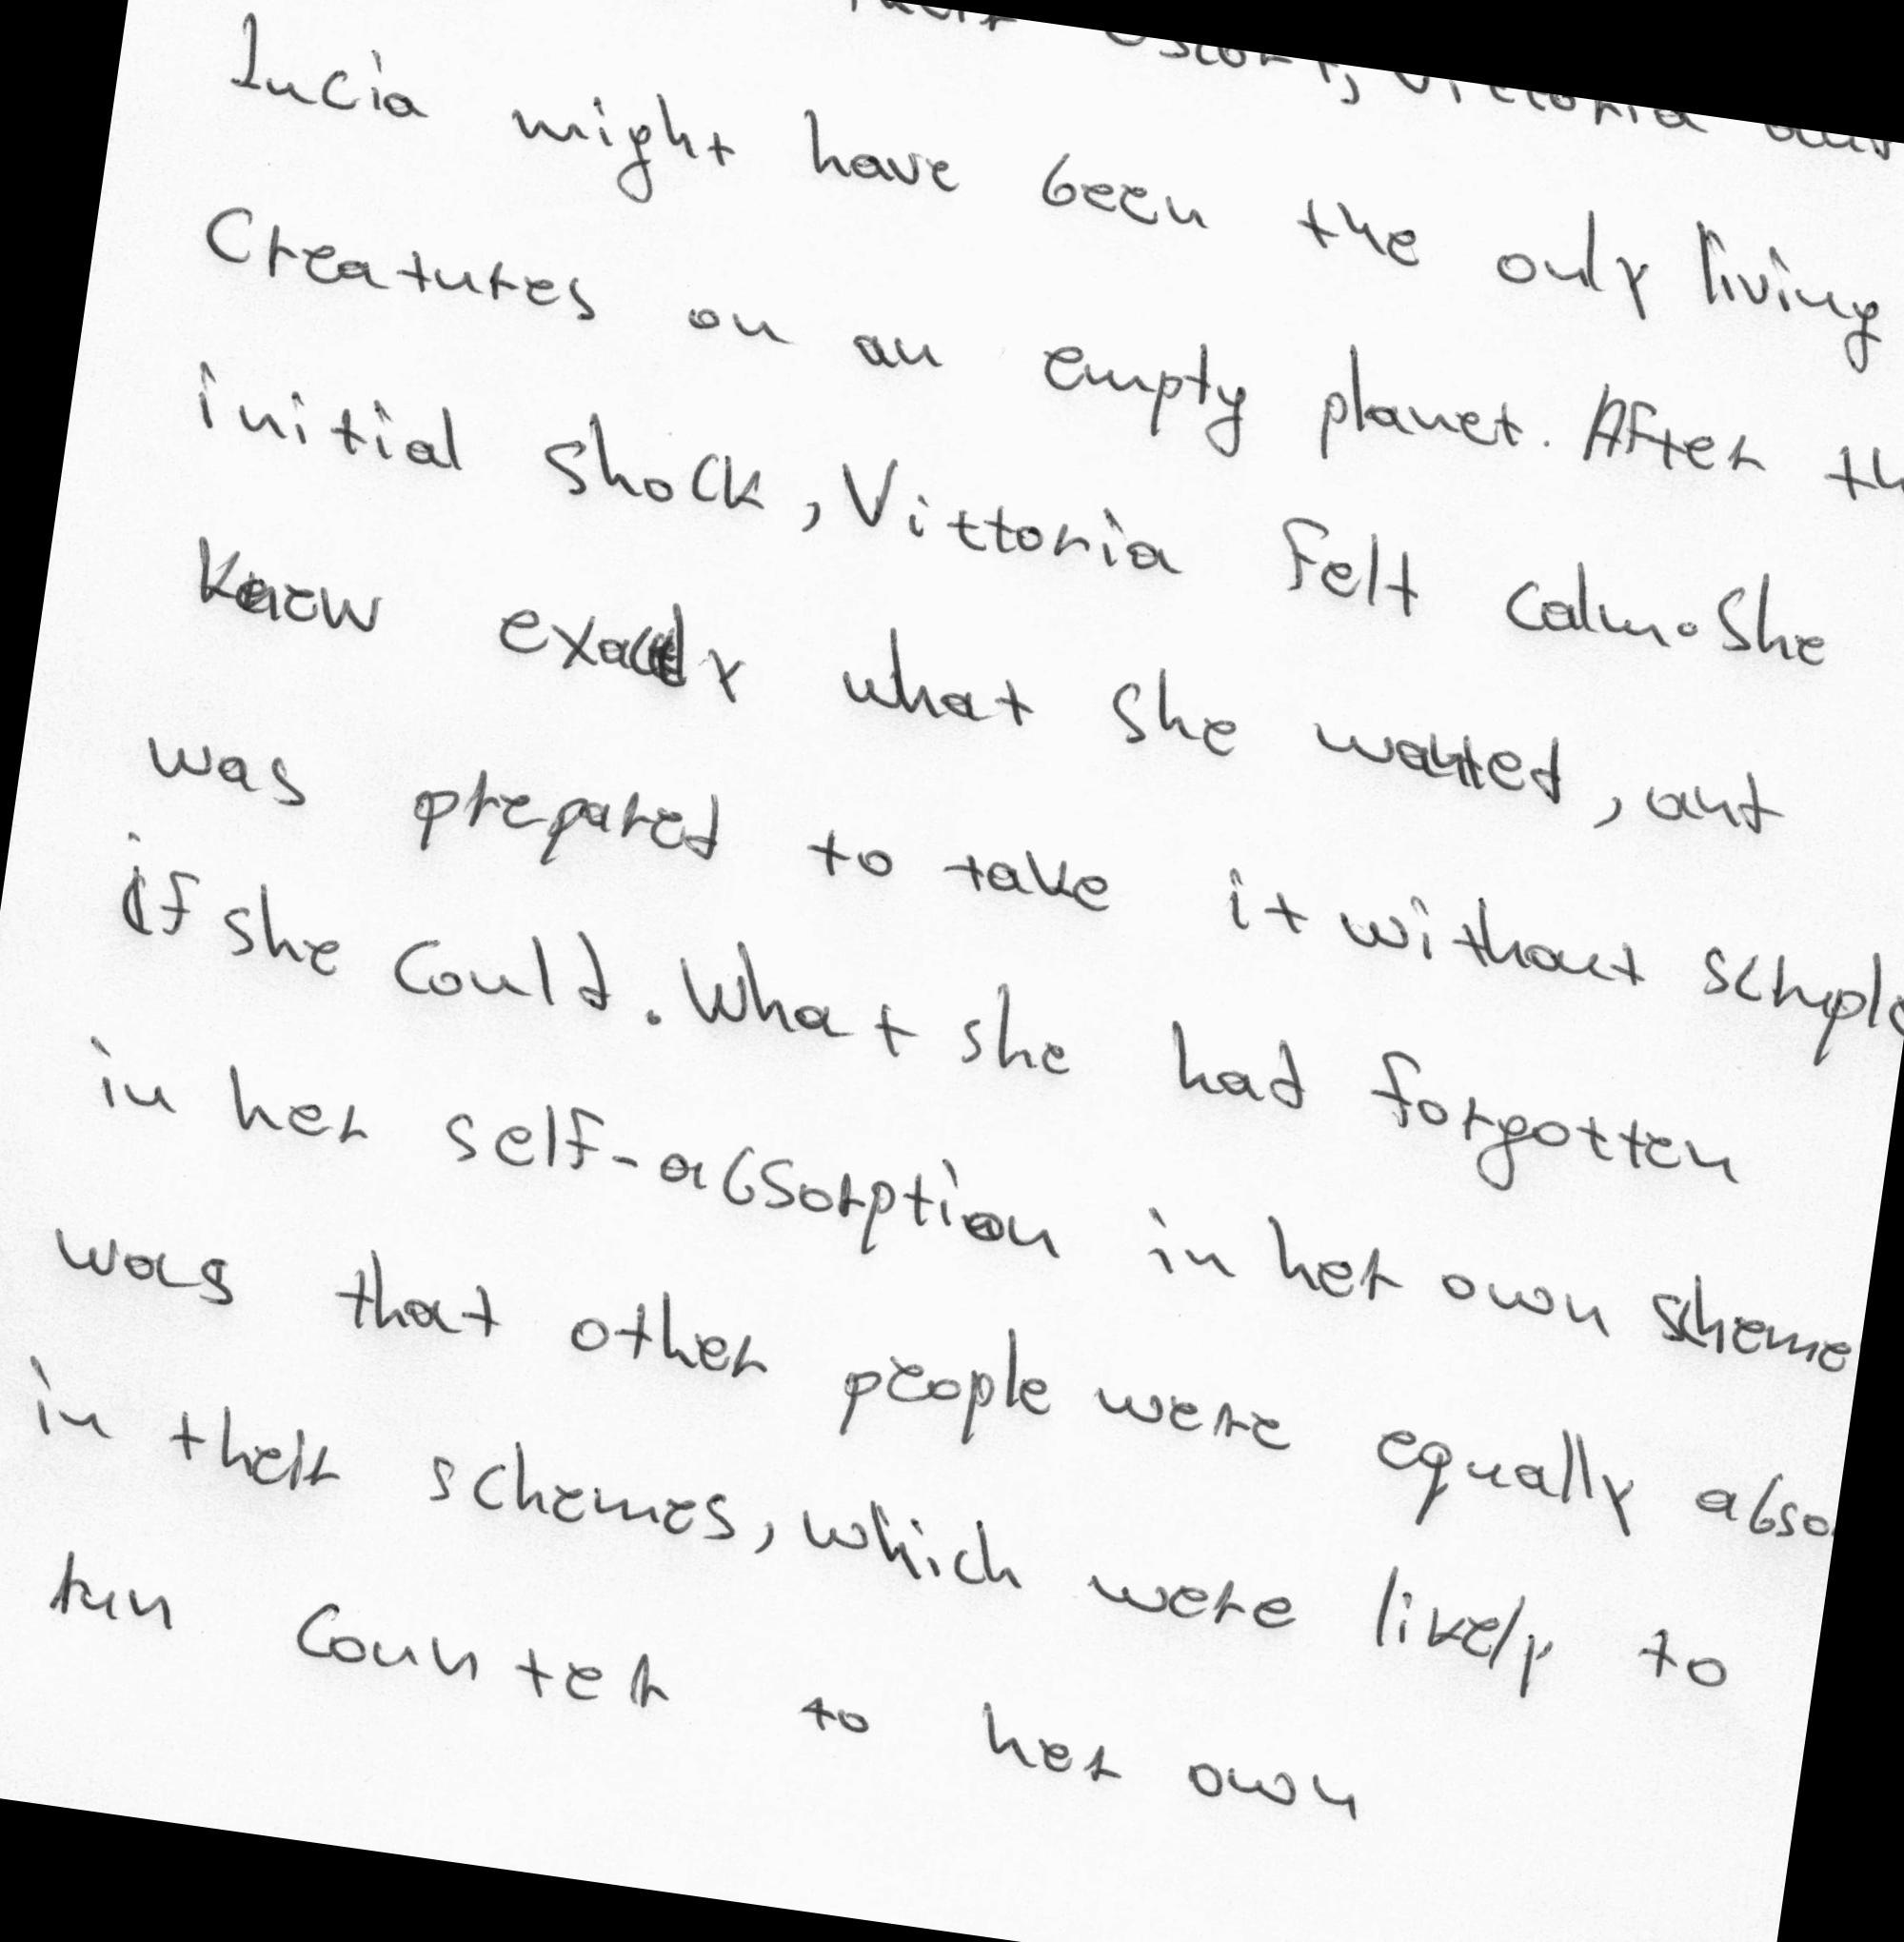 escort, Vittoria and
Lucia might have been the only living
Creatures on an empty planet. After th
initial shock, Vittoria felt calm. She
knew exactly what she wanted, and
was prepared to take it without scruple
if she could. What she had forgotten
in her self-absorption in her own scheme
was that other people were equally abso
in their schemes, which were likely to
run counter to her own